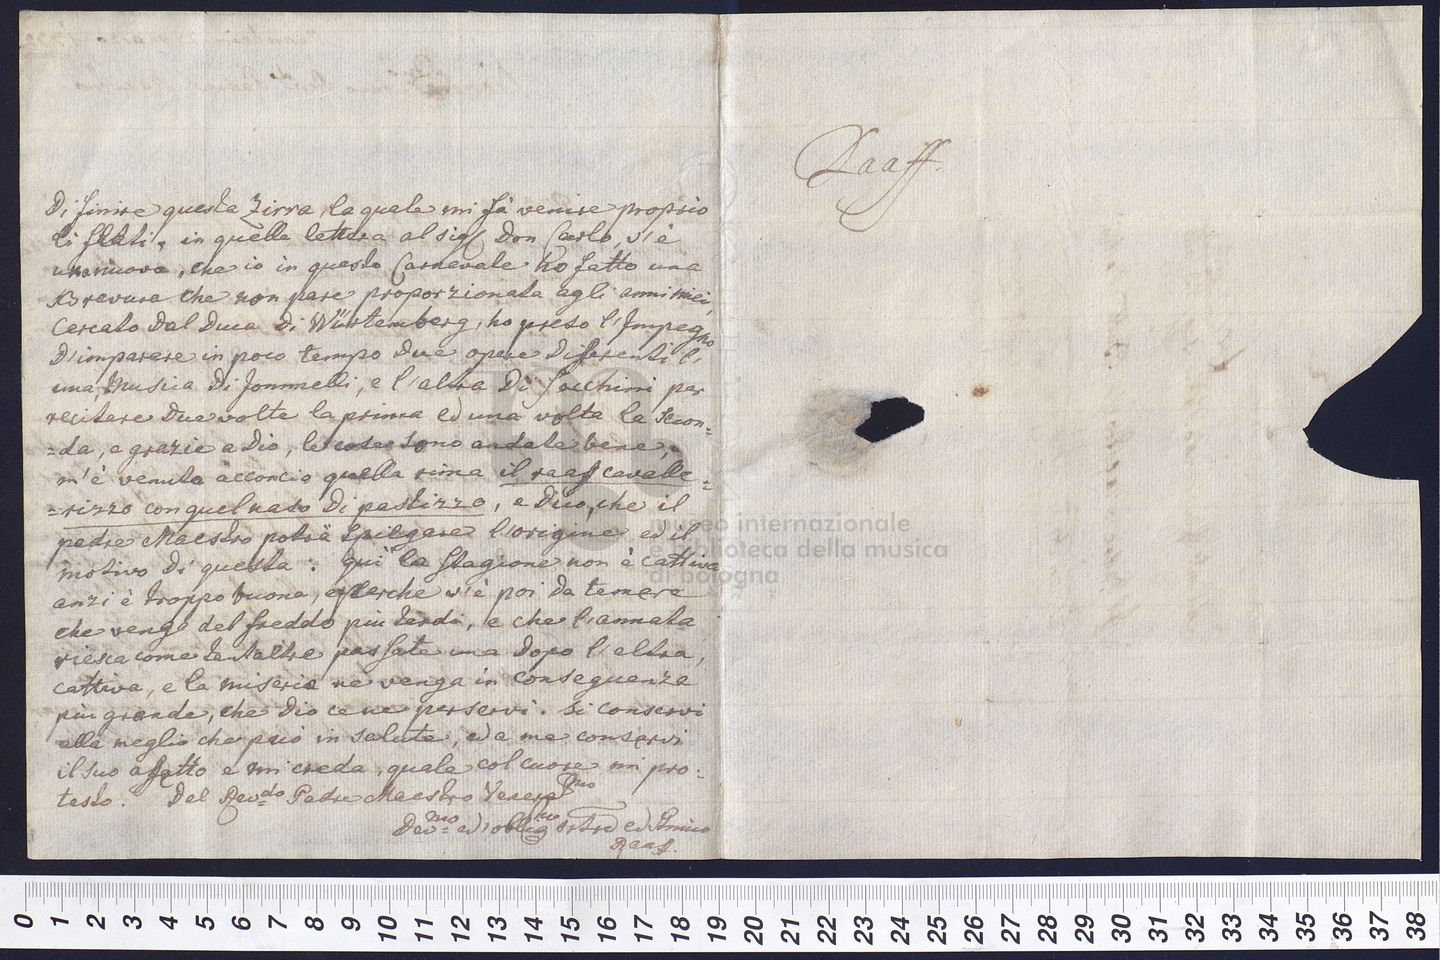 di finire questa Zirra, la quale mi fà venire proprio
li flati, in quella lettera al sig.r Don Carlo, v'è
una nuova, che io in questo Carnevale ho fatto una
Bravura che non pare proporzionata agli anni miei,
cercato dal Duca di Würtemberg, ho preso l'Impegno
d'imparare in poco tempo due opere differenti l'
una, Musica di Jommelli, e l'altra di Sacchini per
recitare due volte la prima ed una volta la secon:
=da, e grazie a Dio, le cose sono andate bene,
m'è venuta acconcio quella rima il raaff cavalle=
=rizzo con quel naso di pastizzo, e dico, che il
padre Maestro potrà spiegare l'origine, ed il
motivo di questa: qui la stagione non è cattiva
anzi è troppo buona, perche v'è poi da temere
che venga del freddo più tardi, e che l'annata
riesca come le altre passate una dopo l'altra,
cattiva, e la miseria ne venga in conseguenza
più grande, che Dio ce ne perservi. Si conservi
alla meglio che può in salute, ed a me conservi
il suo affetto e mi creda, quale col cuore mi pro:
testo. Del Rev.do Padre Maestro Venera.mo
Dev.mo ed oblig.mo ed Amico
Raaff.
Raaff.
museo internazionale
e biblioteca della musica
di bologna
0 1 2 3 4 5 6 7 8 9 10 11 12 13 14 15 16 17 18 19 20 21 22 23 24 25 26 27 28 29 30 31 32 33 34 35 36 37 38